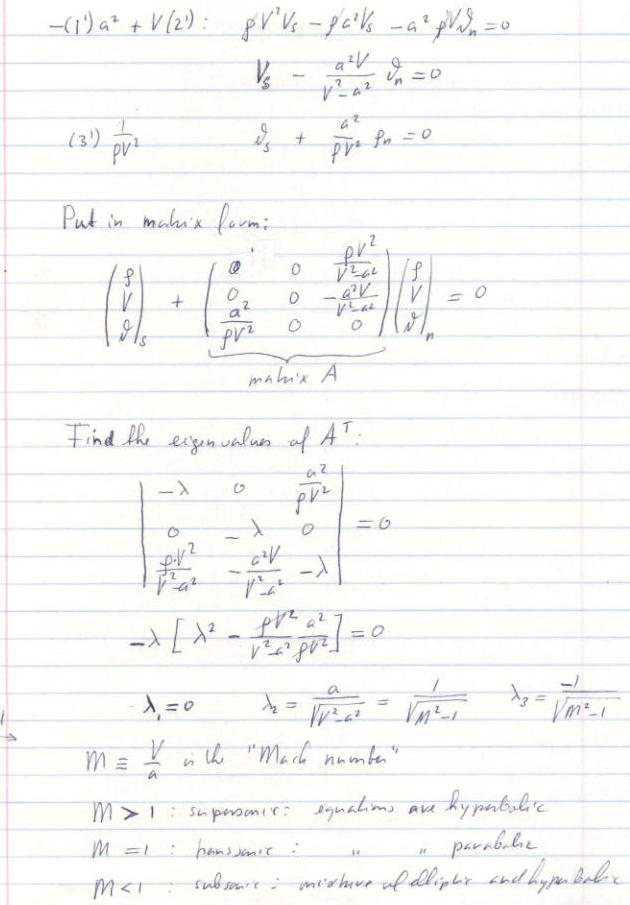 -(1') a² + V(2') : ρV²Vₛ - ρa²Vₛ - a²ρVϑₙ = 0
Vₛ - a²V/(V²-a²) ϑₙ = 0
(3') 1/ρV² ϑₛ + a²/ρV² ρₙ = 0
Put in matrix form:
(ρ V ϑ)ₛ + (0 0 ρV²/(V²-a²) ; 0 0 -a²V/(V²-a²) ; a²/ρV² 0 0) (ρ V ϑ)ₙ = 0
matrix A
Find the eigenvalues of Aᵀ:
| -λ 0 a²/ρV² |
| 0 -λ 0 | = 0
| ρV²/(V²-a²) -a²V/(V²-a²) -λ |
-λ [ λ² - ρV²/(V²-a²) a²/ρV² ] = 0
λ₁ = 0 λ₂ = a/√(V²-a²) = 1/√(M²-1) λ₃ = -1/√(M²-1)
M ≡ V/a is the "Mach number"
M > 1 : supersonic : equations are hyperbolic
M = 1 : transonic : " " parabolic
M < 1 : subsonic : mixture of elliptic and hyperbolic